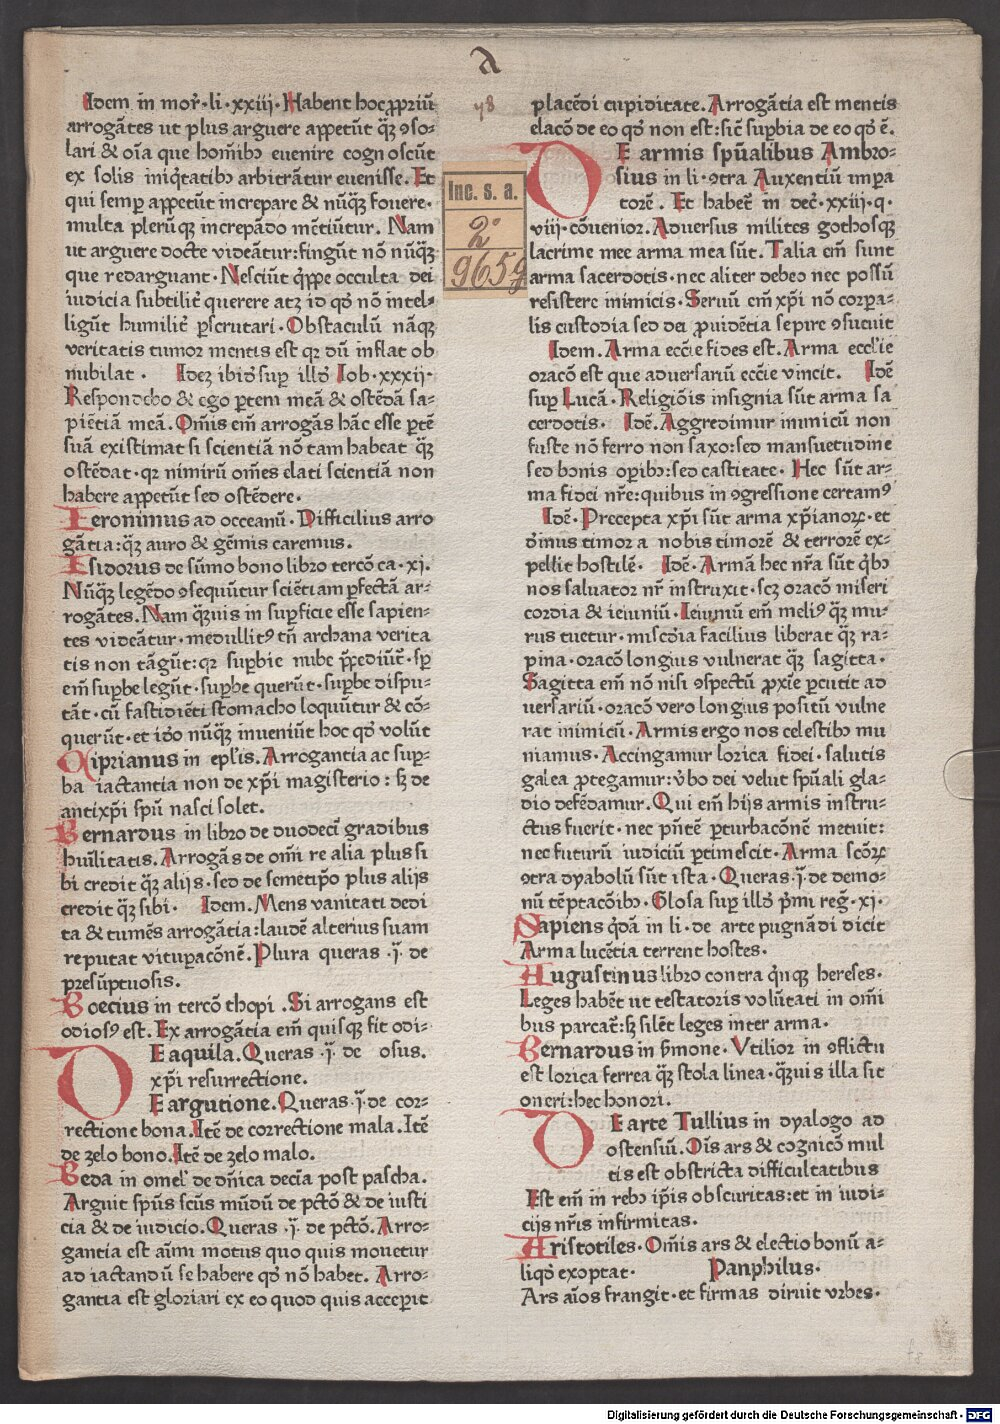 a
Idem in mor̄·li·xxiij·Habent hoc ꝓpriū
arrogātes ut plus arguere appetūt qȝ ꝯso⸗
lari & oīa que homībꝫ euenire cognoscūt
ex solis iniq̄tatibꝫ arbitrātur euenisse. Et
qui semꝑ appetūt increpare & nūqȝ fouere·
multa plerūqꝫ increpādo mētiūtur. Nam
ut arguere docte videātur:fingūt nō nūqȝ
que redarguant·Nesciūt q̄ppe occulta dei
iudicia subtilit̄ querere atꝫ id qď nō intel⸗
ligūt humilit̄ ꝑscrutari·Obstaculū nāqꝫ
veritatis tumor mentis est qꝛ dū inflat ob
nubilat· Ideꝫ ibiď suꝑ illď Iob·xxxij·
Respondebo & ego ꝑtem meā & ostēdā sa⸗
piētiā meā. Om̄is em̄ arrogās hāc esse ꝑtē
suā existimat si scientiā nō tam habeat qȝ
ostēdat·qꝛ nimirū om̄es elati scientiā non
habere appetūt sed ostēdere·
Ieronimus ad occeanū·Difficilius arro
gātia:qȝ auro & gēmis caremus.
Isidorus de sūmo bono libro tercō ca·xj.
Nūqȝ legēdo ꝯsequūtur sciētiam ꝑfectā ar⸗
rogātes. Nam qȝuis in suꝑficie esse sapien⸗
tes videātur·medullitꝰ tn̄ archana verita
tis non tāgūt:qꝛ suꝑbie nube p̄pediūt̄·sꝑ
em̄ suꝑbe legūt·suꝑbe querūt·suꝑbe dispu⸗
tāt·cū fastidiēti stomacho loquūtur & cō⸗
querūt·et iďo nūqȝ inueniūt hoc qď volūt
Ciprianus in ep̄lis. Arrogantia ac suꝑ⸗
ba iactantia non de xp̄i magisterio : sꝫ de
antixp̄i spū nasci solet.
Bernardus in libro de duodecī gradibus
huīlitatis. Arrogās de om̄i re alia plus si
bi credit qȝ alijs·sed de semetip̄o plus alijs
credit qȝ sibi· Idem. Mens vanitati dedi
ta & tumēs arrogātia:laudē alterius suam
reputat vituꝑacōnē. Plura queras ·ī· de
presūptuosis.
Boecius in tercō thopi . Si arrogans est
odiosꝰ est. Ex arrogātia em̄ quisqꝫ fit odi⸗
DE aquila. Queras ·ī· de osus.
xp̄i resurrectione.
E argutione. Queras ·ī· de cor⸗
rectione bona. Itē de correctione mala. Itē
de zelo bono. Itē de zelo malo.
Beda in omel' de dn̄ica decīa post pascha.
Arguit spūs scūs mūdū de pctō & de iusti
cia & de iudicio. Queras ·ī· de pctō. Arro⸗
gantia est aīmi motus quo quis mouetur
ad iactandū se habere qď nō habet. Arro⸗
gantia est gloriari ex eo quod quis acceꝑit
78
Inc. s. a.
2°
965g
placēdi cupiditate. Arrogātia est mentis
elacō de eo qď non est:sic̄ suꝑbia de eo qď ē.
DE armis spūalibus Ambro⸗
sius in li·ꝯtra Auxentiū imꝑa
torē. Et habet̄ in dec̄·xxiij·q·
viij·cōuenior. Aduersus milites gothosqꝫ
lacrime mee arma mea sūt. Talia em̄ sunt
arma sacerdotis·nec aliter debeo nec possū
resistere inimicis·Seruū em̄ xp̄i nō corꝑa⸗
lis custodia sed dei ꝓuidētia sepire ꝯsueuit
Idem. Arma eccīe fides est. Arma eccl'ie
oracō est que aduersariū eccīe vincit. Idē
suꝑ Lucā·Religiōis insignia sūt arma sa
cerdotis· Idē. Aggredimur inimicū non
fuste nō ferro non saxo:sed mansuetudine
sed bonis oꝑibꝫ:sed castitate·Hec sūt ar⸗
ma fidei nr̄e:quibus in ꝯgressione certamꝰ
Idē·Precepta xp̄i sūt arma xp̄ianoꝝ·et
dn̄inus timor a nobis timorē & terrorē ex⸗
pellit hostilē· Idē·Armā hec nr̄a sūt q̄bꝫ
nos saluator nr̄ instruxit·scꝫ oracō miseri
cordia & ieiuniū·Ieiuniū em̄ meliꝰ qȝ mu⸗
rus tuetur·miscďia facilius liberat qȝ ra⸗
pina·oracō longius vulnerat qȝ sagitta·
Sagitta em̄ nō nisi ꝯspectū ꝓxīe ꝑcutit ad
uersariū·oracō vero longius positū vulne
rat inimicū·Armis ergo nos celestibꝫ mu
niamus·Accingamur lorica fidei·salutis
galea ꝓtegamur:v̄bo dei velut spūali gla⸗
dio defēdamur. Qui em̄ hijs armis instru⸗
ctus fuerit·nec pn̄tē ꝑturbacōnē metuit:
nec futurū iudiciū ꝑtimescit·Arma scōꝝ
ꝯtra dyabolū sūt ista·Queras·ī·de demo⸗
nū tēptacōibꝫ·Glosa suꝑ illď p̄mi reg̅·xj·
Sapiens qďā in li·de arte pugnādi dicit
Arma lucētia terrent hostes.
Augustinus libro contra q̄nqꝫ hereses·
Leges habēt ut testatoris volūtati in om̄i
bus parcat̄:sꝫ silēt leges inter arma.
Bernardus in ẜmone·Vtilior in ꝯflictu
est lorica ferrea qȝ stola linea·qȝuis illa sit
oneri:hec honori.
DE arte Tullius in dyalogo ad
ostensiū. Oīs ars & cognicō mul
tis est obstricta difficultatibus
Est em̄ in rebꝫ ip̄is obscuritas:et in iudi⸗
cijs nr̄is infirmitas·
Aristotiles·Om̄is ars & electio bonū a⸗
liqď exoptat· Panphilus·
Ars aīos frangit·et firmas diruit vrbes·
Digitalisierung gefördert durch die Deutsche Forschungsgemeinschaft · DFG